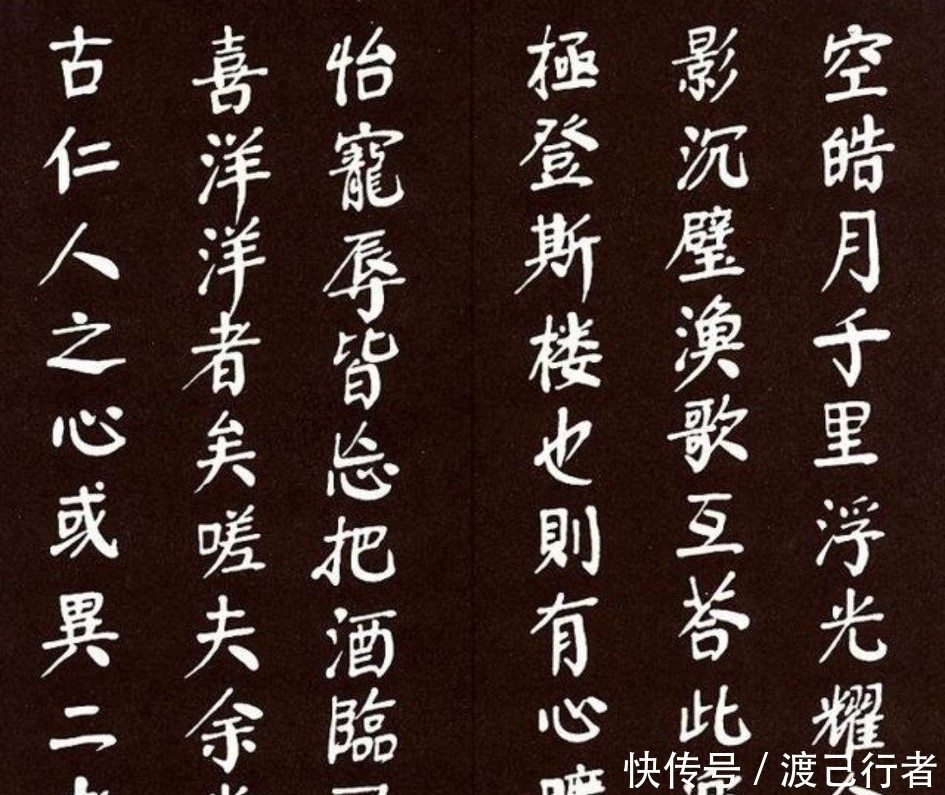 空皓月千里浮光耀
影沉璧漁歌互荅此
極登斯楼也則有心
怡寵辱皆忘把酒臨
喜洋洋者矣嗟夫余
古仁人之心或異二
快传号 / 渡己行者